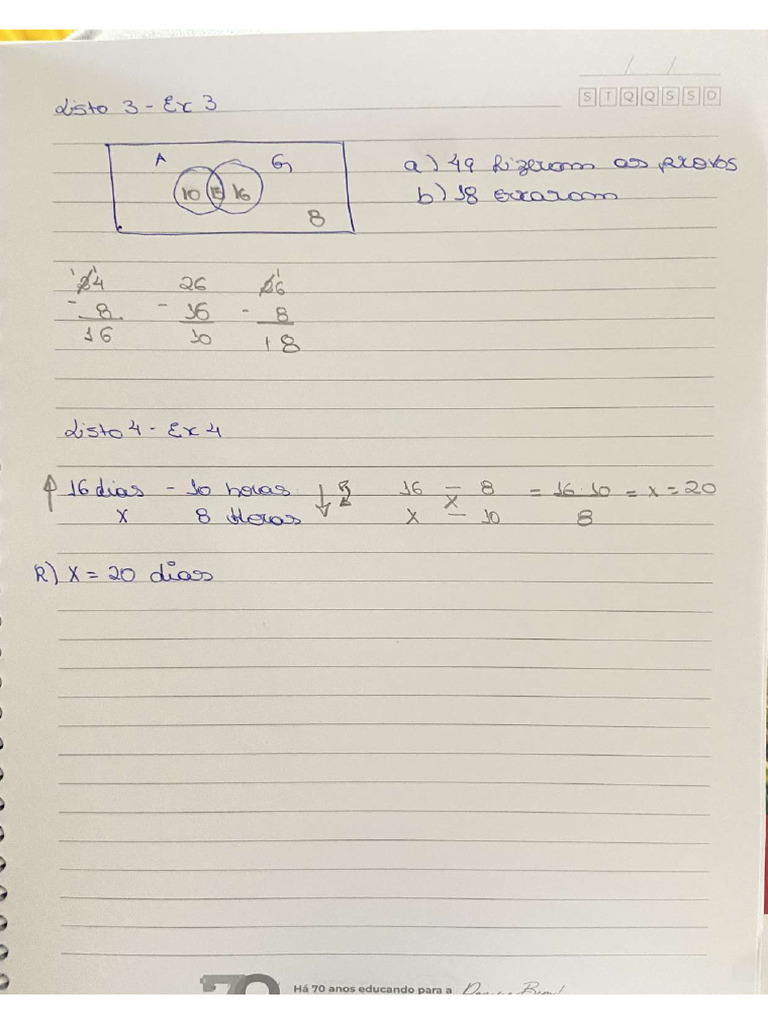 / /
S T Q Q S S D
Lista 3 - Ex 3
A G
10 15 16
8
a) 49 fizeram as provas
b) 18 erraram
24 26 26
- 8 - 16 - 8
16 10 18
Lista 4 - Ex 4
↑ 16 dias - 10 horas ↓ 16 – 8 = 16·10 = x = 20
x 8 Horas x – 10 8
R) x = 20 dias
Há 70 anos educando para a